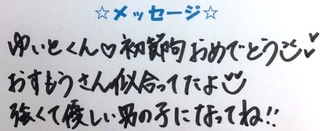 ☆メッセージ☆
ゆいとくん♡初節句おめでとう
おすもうさん似合ってたよ
強くて優しい男の子になってね!!